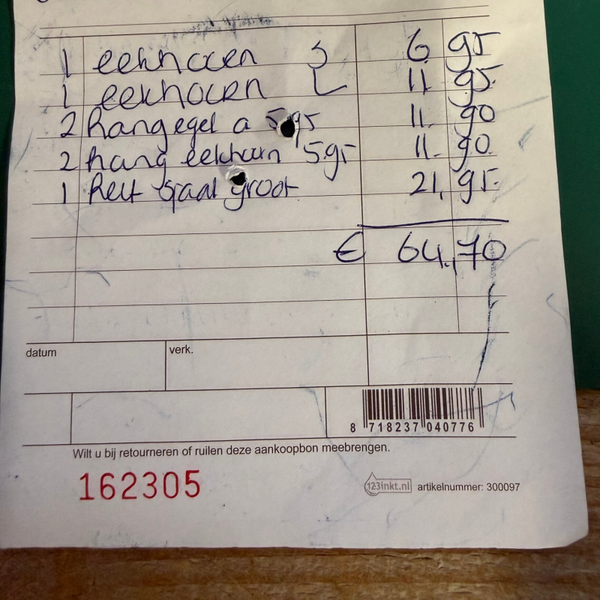 1 eekhoorn S 6 95
1 eekhoorn L 11 95
2 hangegel a 5,95 11. 90
2 hang eekhoorn 5.95 11. 90
1 groot 21, 95
€ 64,70
datum verk.
8 718237 040776
Wilt u bij retourneren of ruilen deze aankoopbon meebrengen.
162305
123inkt.nl artikelnummer: 300097